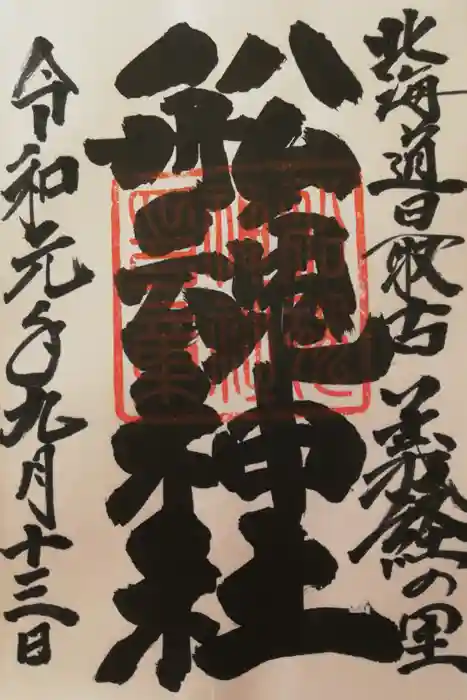 北海道最古 義経の里
船魂神社
令和元年九月十三日